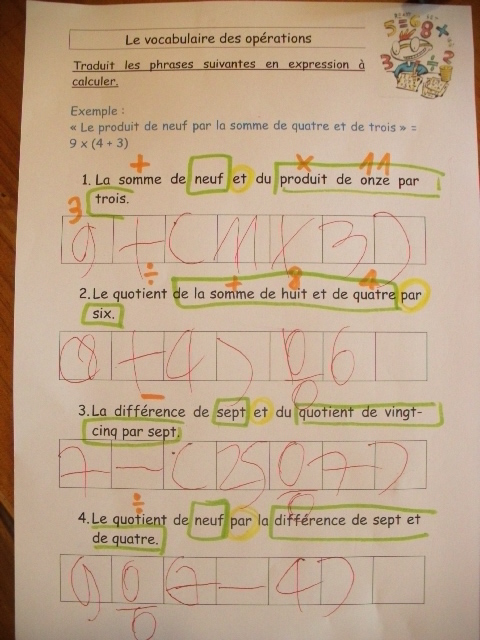 Le vocabulaire des opérations
Traduit les phrases suivantes en expression à
calculer.
Exemple :
« Le produit de neuf par la somme de quatre et de trois » =
9 x (4 + 3)
+ x 11
1. La somme de neuf et du produit de onze par
trois.
3
9 + ( 11 x 3 )
÷ + 8 4
2.Le quotient de la somme de huit et de quatre par
six.
(8 + 4 ) ÷ 6
−
3.La différence de sept et du quotient de vingt-
cinq par sept.
7 − ( 25 ÷ 7 )
÷
4.Le quotient de neuf par la différence de sept et
de quatre.
9 ÷ (7 − 4 )